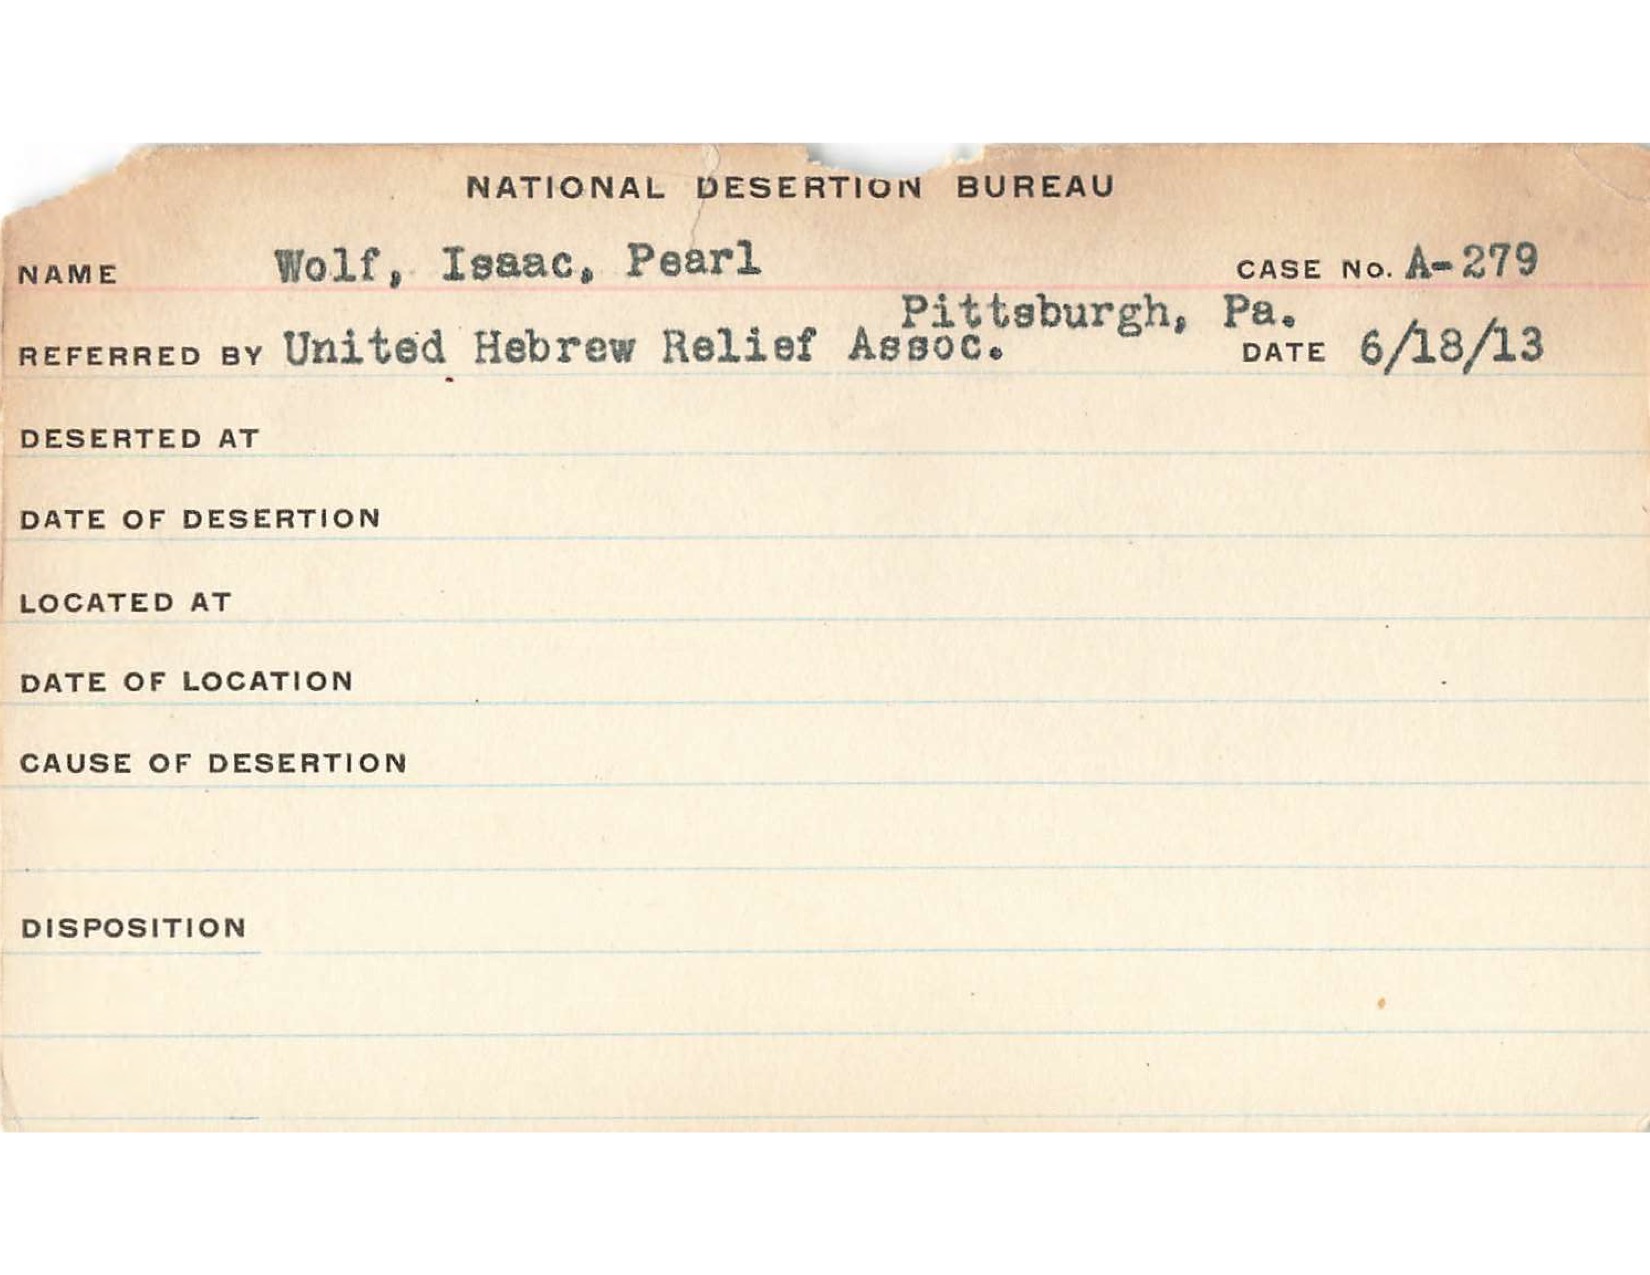 NATIONAL DESERTION BUREAU
NAME Wolf, Isaac, Pearl CASE No. A-279
Pittsburgh, Pa.
REFERRED BY United Hebrew Relief Assoc. DATE 6/18/13
DESERTED AT
DATE OF DESERTION
LOCATED AT
DATE OF LOCATION
CAUSE OF DESERTION
DISPOSITION